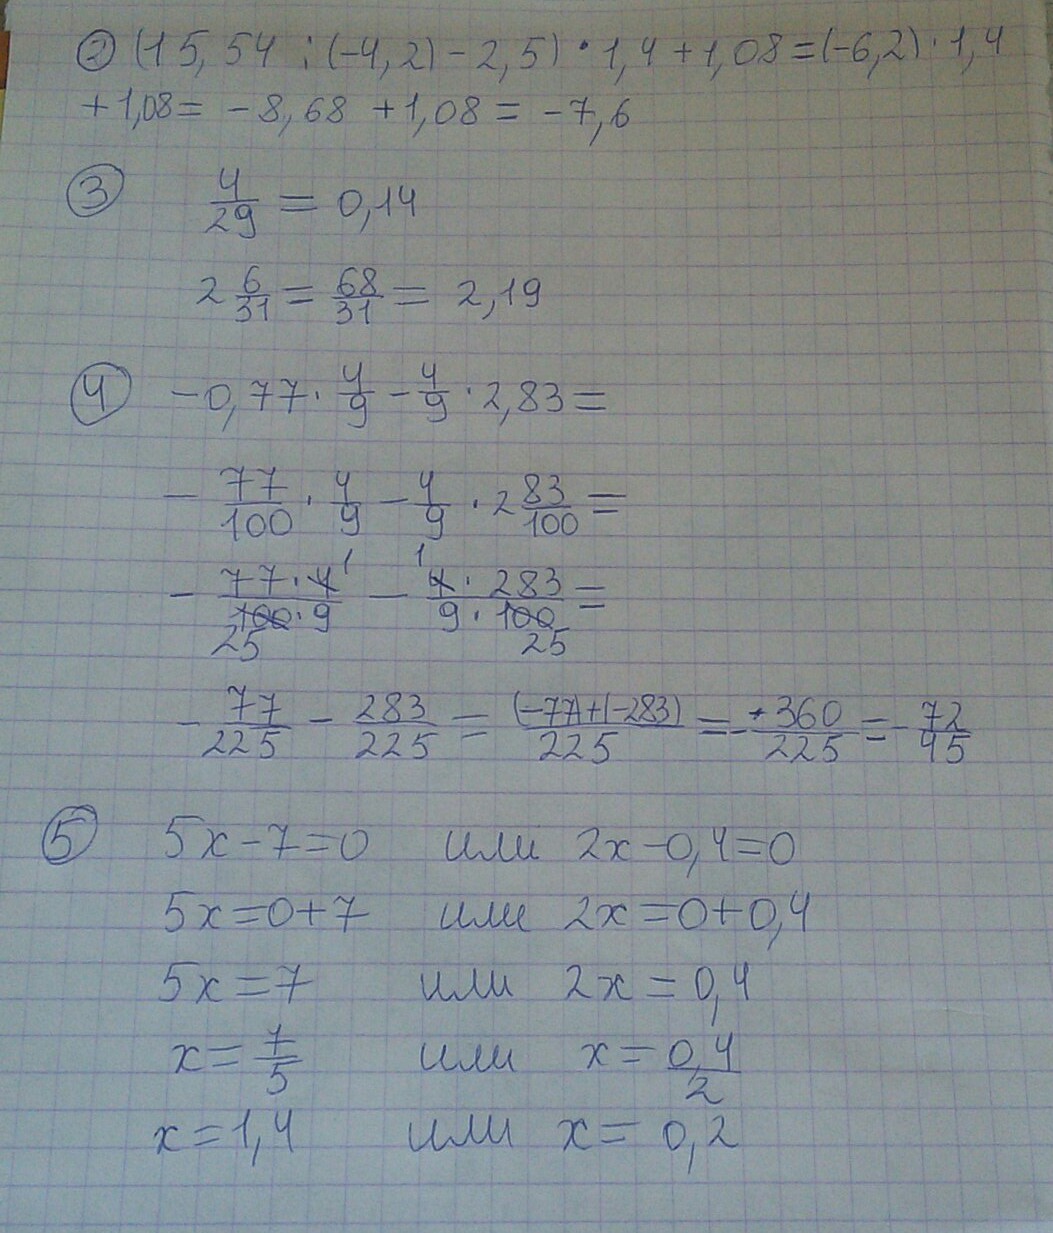 ② (15,54 : (-4,2) - 2,5) · 1,4 + 1,08 = (-6,2) · 1,4
+ 1,08 = - 8,68 + 1,08 = - 7,6
③ 4/29 = 0,14
2 6/31 = 68/31 = 2,19
④ - 0,77 · 4/9 - 4/9 · 2,83 =
- 77/100 · 4/9 - 4/9 · 2 83/100 =
1 1
- 77 · 4/100 · 9 - 4 · 283/9 · 100 =
25 25
- 77/225 - 283/225 = (-77)+(-283)/225 = - 360/225 = - 72/45
⑤ 5x - 7 = 0 или 2x - 0,4 = 0
5x = 0 + 7 или 2x = 0 + 0,4
5x = 7 или 2x = 0,4
x = 7/5 или x = 0,4/2
x = 1,4 или x = 0,2